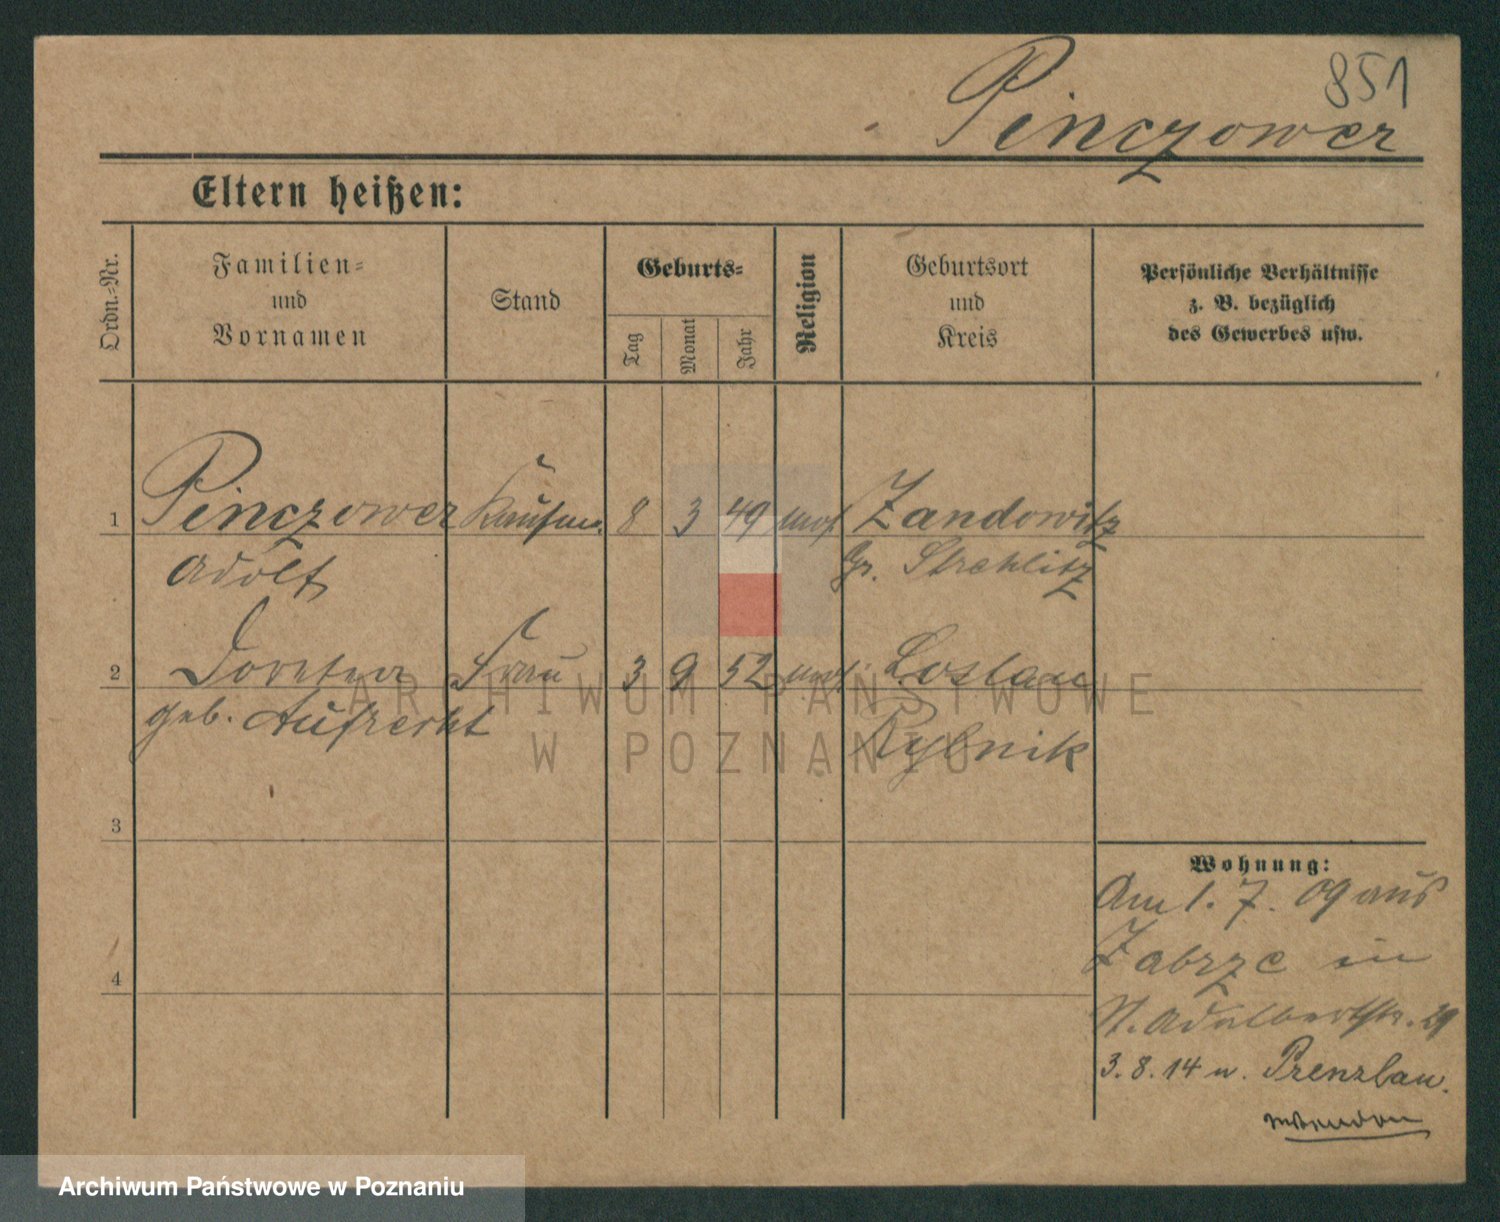 851
Pinczower
Eltern heißen:
Ordn.-Nr.
Familien-
und
Vornamen
Stand
Geburts-
Tag
Monat
Jahr
Religion
Geburtsort
und
Kreis
Persönliche Verhältnisse
z. B. bezüglich
des Gewerbes usw.
1 Pinczower Kaufm. 8 3 49 mos. Zandowitz
Adolf Gr. Strehlitz
2 Dorothea Frau 3 9 52 mos. Loslau
geb. Aufrecht Rybnik
3
4
Wohnung:
Am 1. 7. 09 aus
Zabrze in
St. Adalbertstr. 29
3. 8. 14 n. Prenzlau.
ARCHIWUM PAŃSTWOWE
W POZNANIU
Archiwum Państwowe w Poznaniu